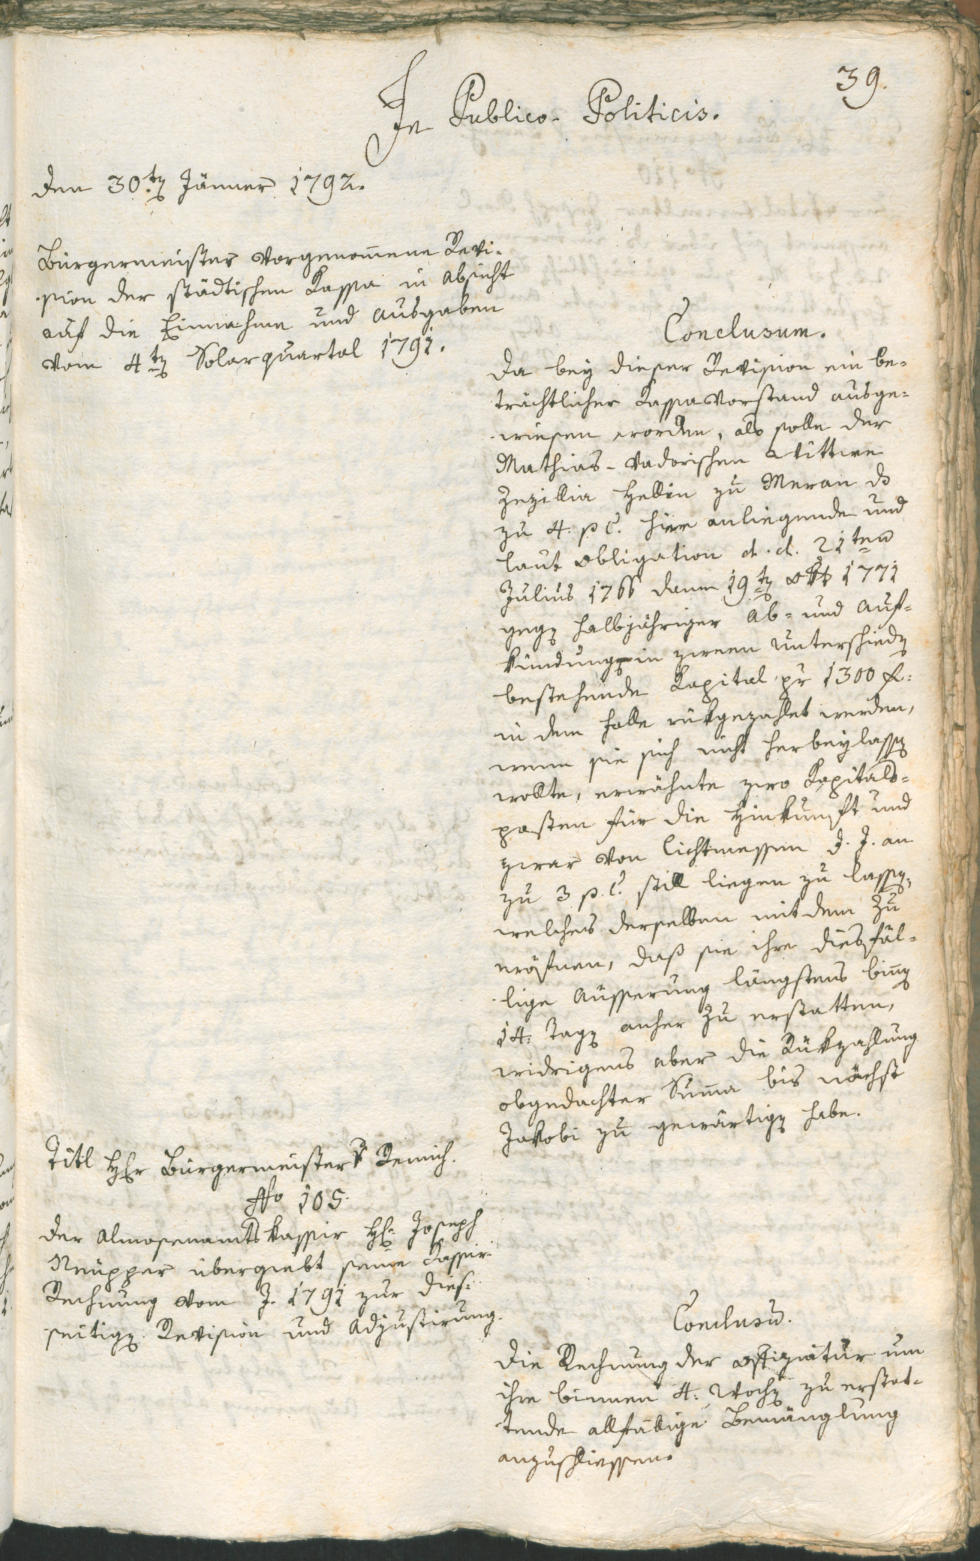 39.
In Publico-Politicis.
den 30.ten Jänner 1792.
Bürgermeister vorgenommene Revi-
sion der städtischen Kassa in Absicht
auf die Einnahme und Ausgaben
vom 4ten Solarquartal 1791.
Conclusum.
Da bey dieser Revision ein be-
trächtlicher Kassavorstand ausge-
wiesen worden, als solle der
Mathias-Vadorischen Wittwe
Zezillia Hellin zu Meran das
zu 4. p C. hier anliegende und
laut Obligation d. d. 21ten
Julius 1766 dann 19ten 1771
gegen halbjähriger Ab- und Auf-
kündung in zween Unterschieden
bestehende Kapital pr 1300 f:
in dem Falle rükgezahlet werden,
wenn sie sich nicht herbeylassen
wollte, erwähnte zwo Kapitals-
posten für die Hinkunft und
zwar von Lichtmessen d. J. an
zu 3 p. C. still liegen zu lassen,
welches derselben mit dem zu
eröfnen, daß sie ihre diesfäl-
lige Äusserung längstens binnen
14. Tagen anher zu erstatten,
widrigens aber die Rükzahlung
obgedachter Summa bis nächst
Jakobi zu gewärtigen habe.
Titl HHr Bürgermeister Remich.
Nro 105.
Der Almosenamtskassir Hr. Joseph
Neupper übergiebt seine Kassir-
Rechnung vom J. 1791 zur dies-
seitigen Revision und Adjustirung.
Conclusum.
Die Rechnung der Offiziatur um
ihre binnen 4. Wochen zu erstat-
tende allfällige Bemänglung
anzuschliessen.